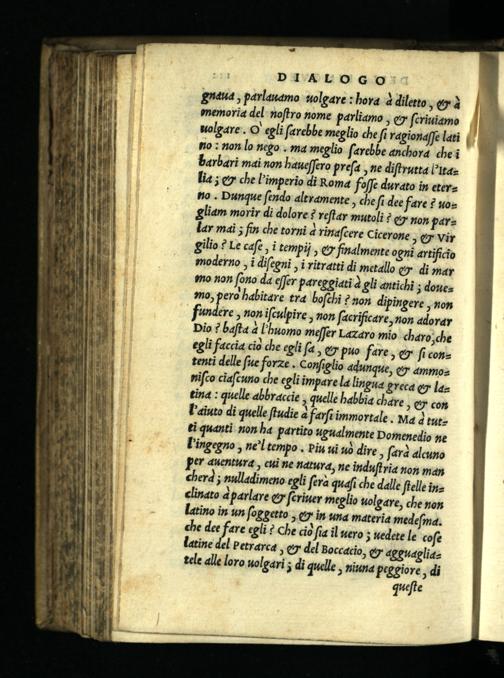 DIALOGO
gnaua, parlauamo volgare: hora à diletto, & à
memoria del nostro nome parliamo, & scriuiamo
uolgare. O' egli sarebbe meglio che si ragionasse lati
no: non lo nego. ma meglio sarebbe anchora che i
barbari mai non hauessero presa, ne distrutta l'Ita-
lia; & che l'imperio di Roma fosse durato in eter-
no. Dunque sendo altramente, che si dee fare? uo-
gliam morir di dolore? restar mutoli? & non par-
lar mai; fin che torni à rinascere Cicerone, & Vir
gilio? Le case, i tempij, & finalmente ogni artificio
moderno, i disegni, i ritratti di metallo & di mar
mo non sono da esser pareggiati à gli antichi; doue-
mo, però habitare tra boschi? non dipingere, non
fundere, non isculpire, non sacrificare, non adorar
Dio? basta à l'huomo messer Lazaro mio charo, che
egli faccia ciò che egli sa, & puo fare, & si con-
tenti delle sue forze. Consiglio adunque, & ammo-
nisco ciascuno che egli impare la lingua greca & la-
tina: quelle abbraccie, quelle habbia chare, & con
l'aiuto di quelle studie à farsi immortale. Ma à tut-
ti quanti non ha partito ugualmente Domenedio ne
l'ingegno, ne'l tempo. Piu ui uò dire, sarà alcuno
per auentura, cui ne natura, ne industria non man
cherà; nulladimeno egli serà quasi che dalle stelle in-
clinato à parlare & scriuer meglio volgare, che non
latino in un soggetto, & in una materia medesma.
che dee fare egli? Che ciò sia il uero; uedete le cose
latine del Petrarca, & del Boccacio, & agguaglia-
tele alle loro volgari; di quelle, niuna peggiore, di
queste